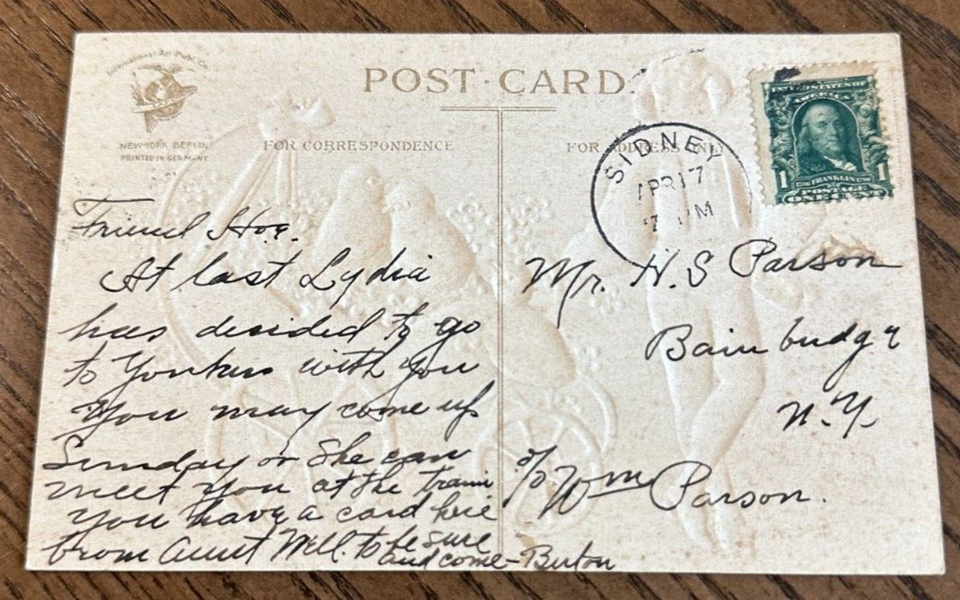 International Art Publ. Co.
POST CARD.
NEW YORK BERLIN
PRINTED IN GERMANY
FOR CORRESPONDENCE
FOR ADDRESS ONLY
SIDNEY
APR 17
7 PM
UNITED STATES OF
AMERICA
1 FRANKLIN 1
POSTAGE
ONE CENT
Friend
At last Lydia
has decided to go
to Yonkers with you
You may come up
Sunday or She can
meet you at the train
You have a card here
from Aunt Mell. to be sure
and come - Burton
Mr. H. S Parson
Bainbridge
N.Y.
c/o Wm Parson.